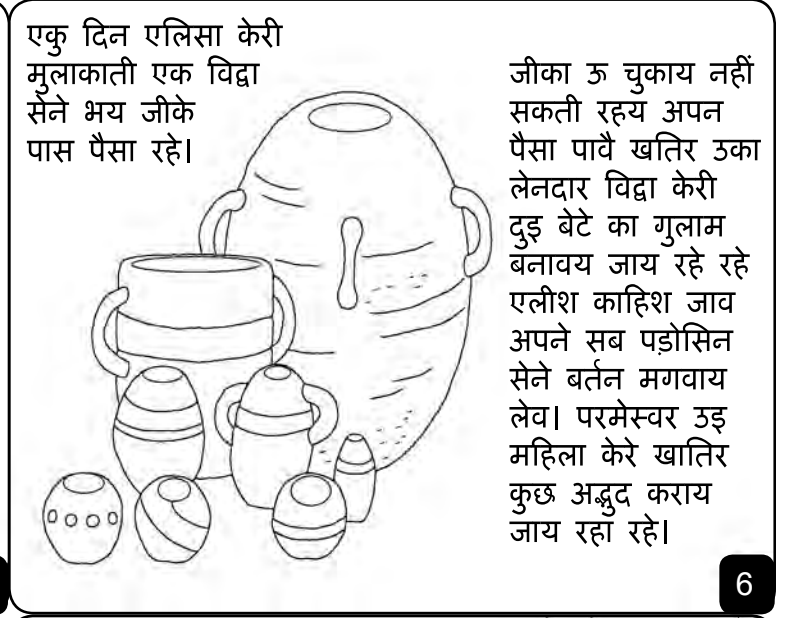 एकु दिन एलिसा केरी
मुलाकाती एक विद्वा
सेने भय जीके
पास पैसा रहे।
जीका ऊ चुकाय नहीं
सकती रहय अपन
पैसा पावै खतिर उका
लेनदार विद्वा केरी
दुइ बेटे का गुलाम
बनावय जाय रहे रहे
एलीश काहिश जाव
अपने सब पड़ोसिन
सेने बर्तन मगवाय
लेव। परमेस्वर उइ
महिला केरे खातिर
कुछ अद्भुद कराय
जाय रहा रहे।
6